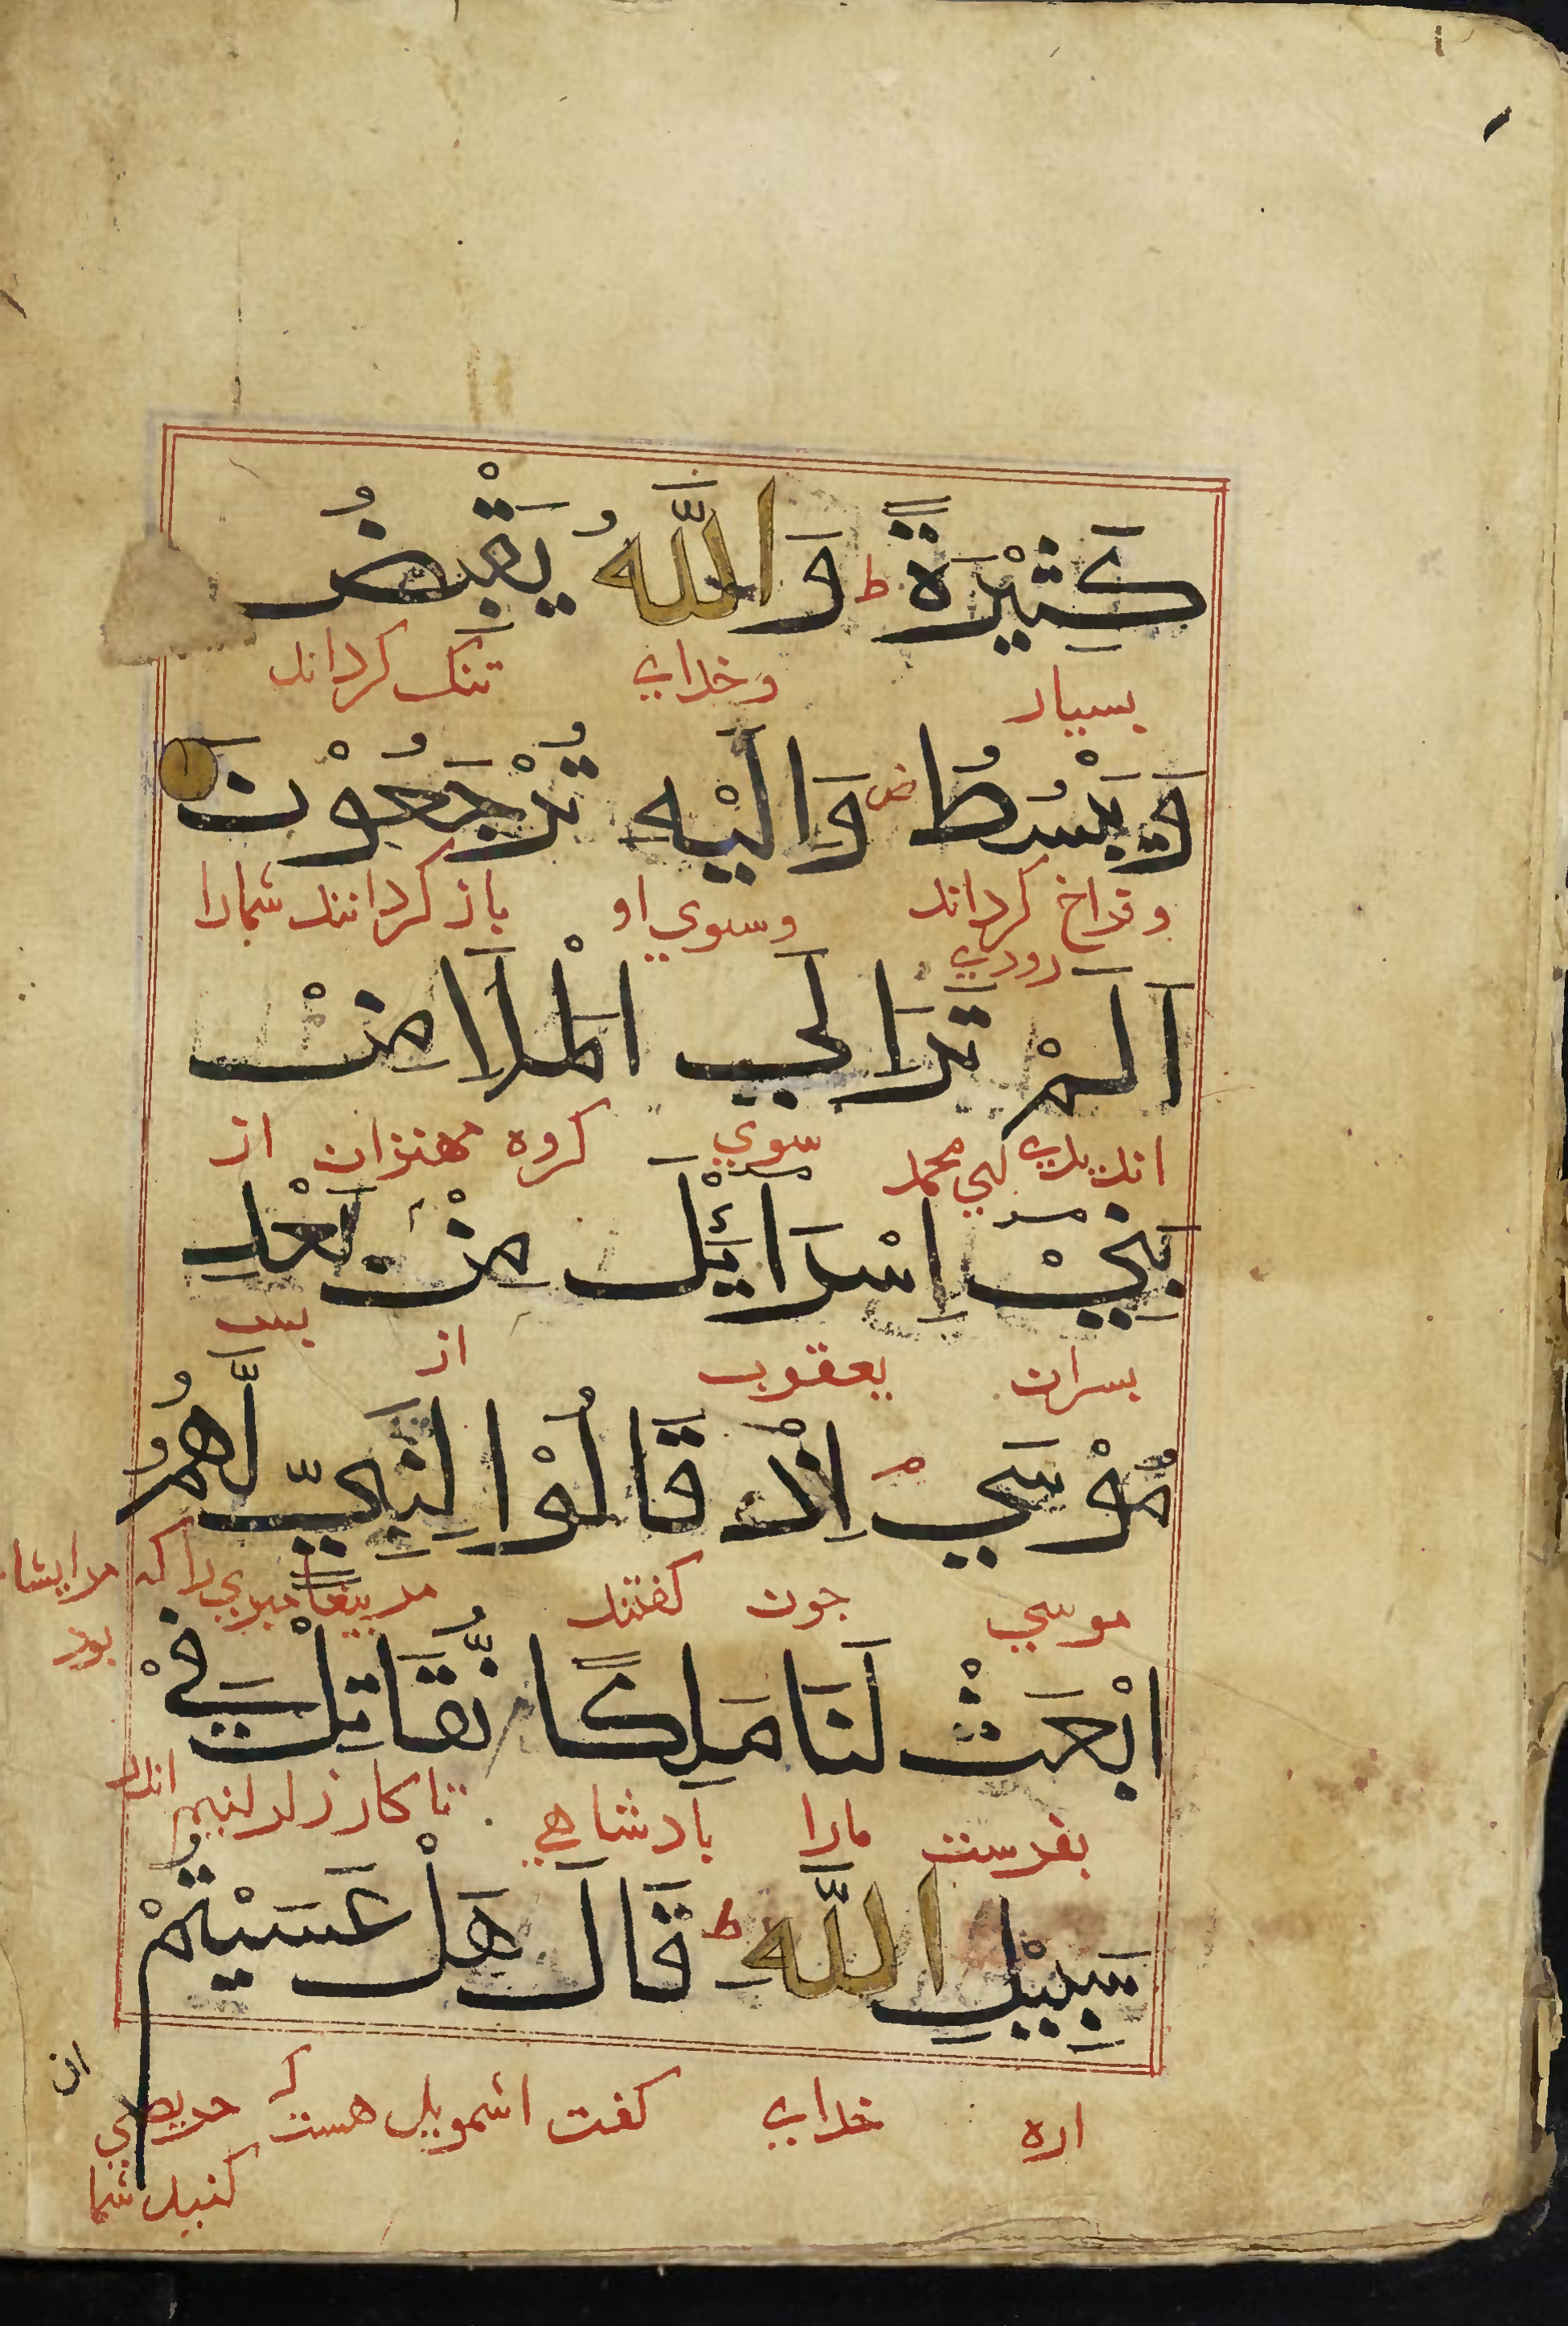 كَثِيْرَةً ط وَاللّٰهُ يَقْبِضُ
بسيار وخداي تنك كرداند
وَيَبْسُطُ ص وَاِلَيْهِ تُرْجَعُوْنَ
وفراخ كرداند وسوي او باز كردانند شمارا
اَلَمْ تَرَ اِلَي الْمَلَاِ مِنْ
سوي كروه مهتران از
بَنِيْ اِسْرَائِيْلَ مِنْ بَعْدِ
بسران يعقوب از بس
مُوْسَي م اِذْ قَالُوْا لِنَبِيٍّ لَّهُمُ
موسي جون كفتند مر بيغامبري را كه مرايشا بود
ابْعَثْ لَنَا مَلِكًا نُّقَاتِلْ فِيْ
بفرست مارا بادشاهي تا كارزار كنيم اندر
سَبِيْلِ اللّٰهِ ط قَالَ هَلْ عَسَيْتُمْ
اره خداي كفت اشمويل هست كه حريصي
كنيد شما
ان